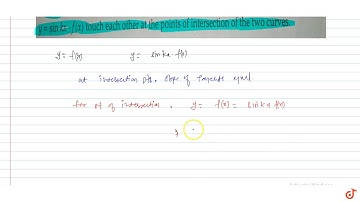 y = sin kx · f(x) touch each other at the points of intersection of the two curves.
y = f(x) y = sin kx · f(x)
at intersection pts. slope of tangents equal
for pt of intersection , y = f(x) = sin kx f(x)